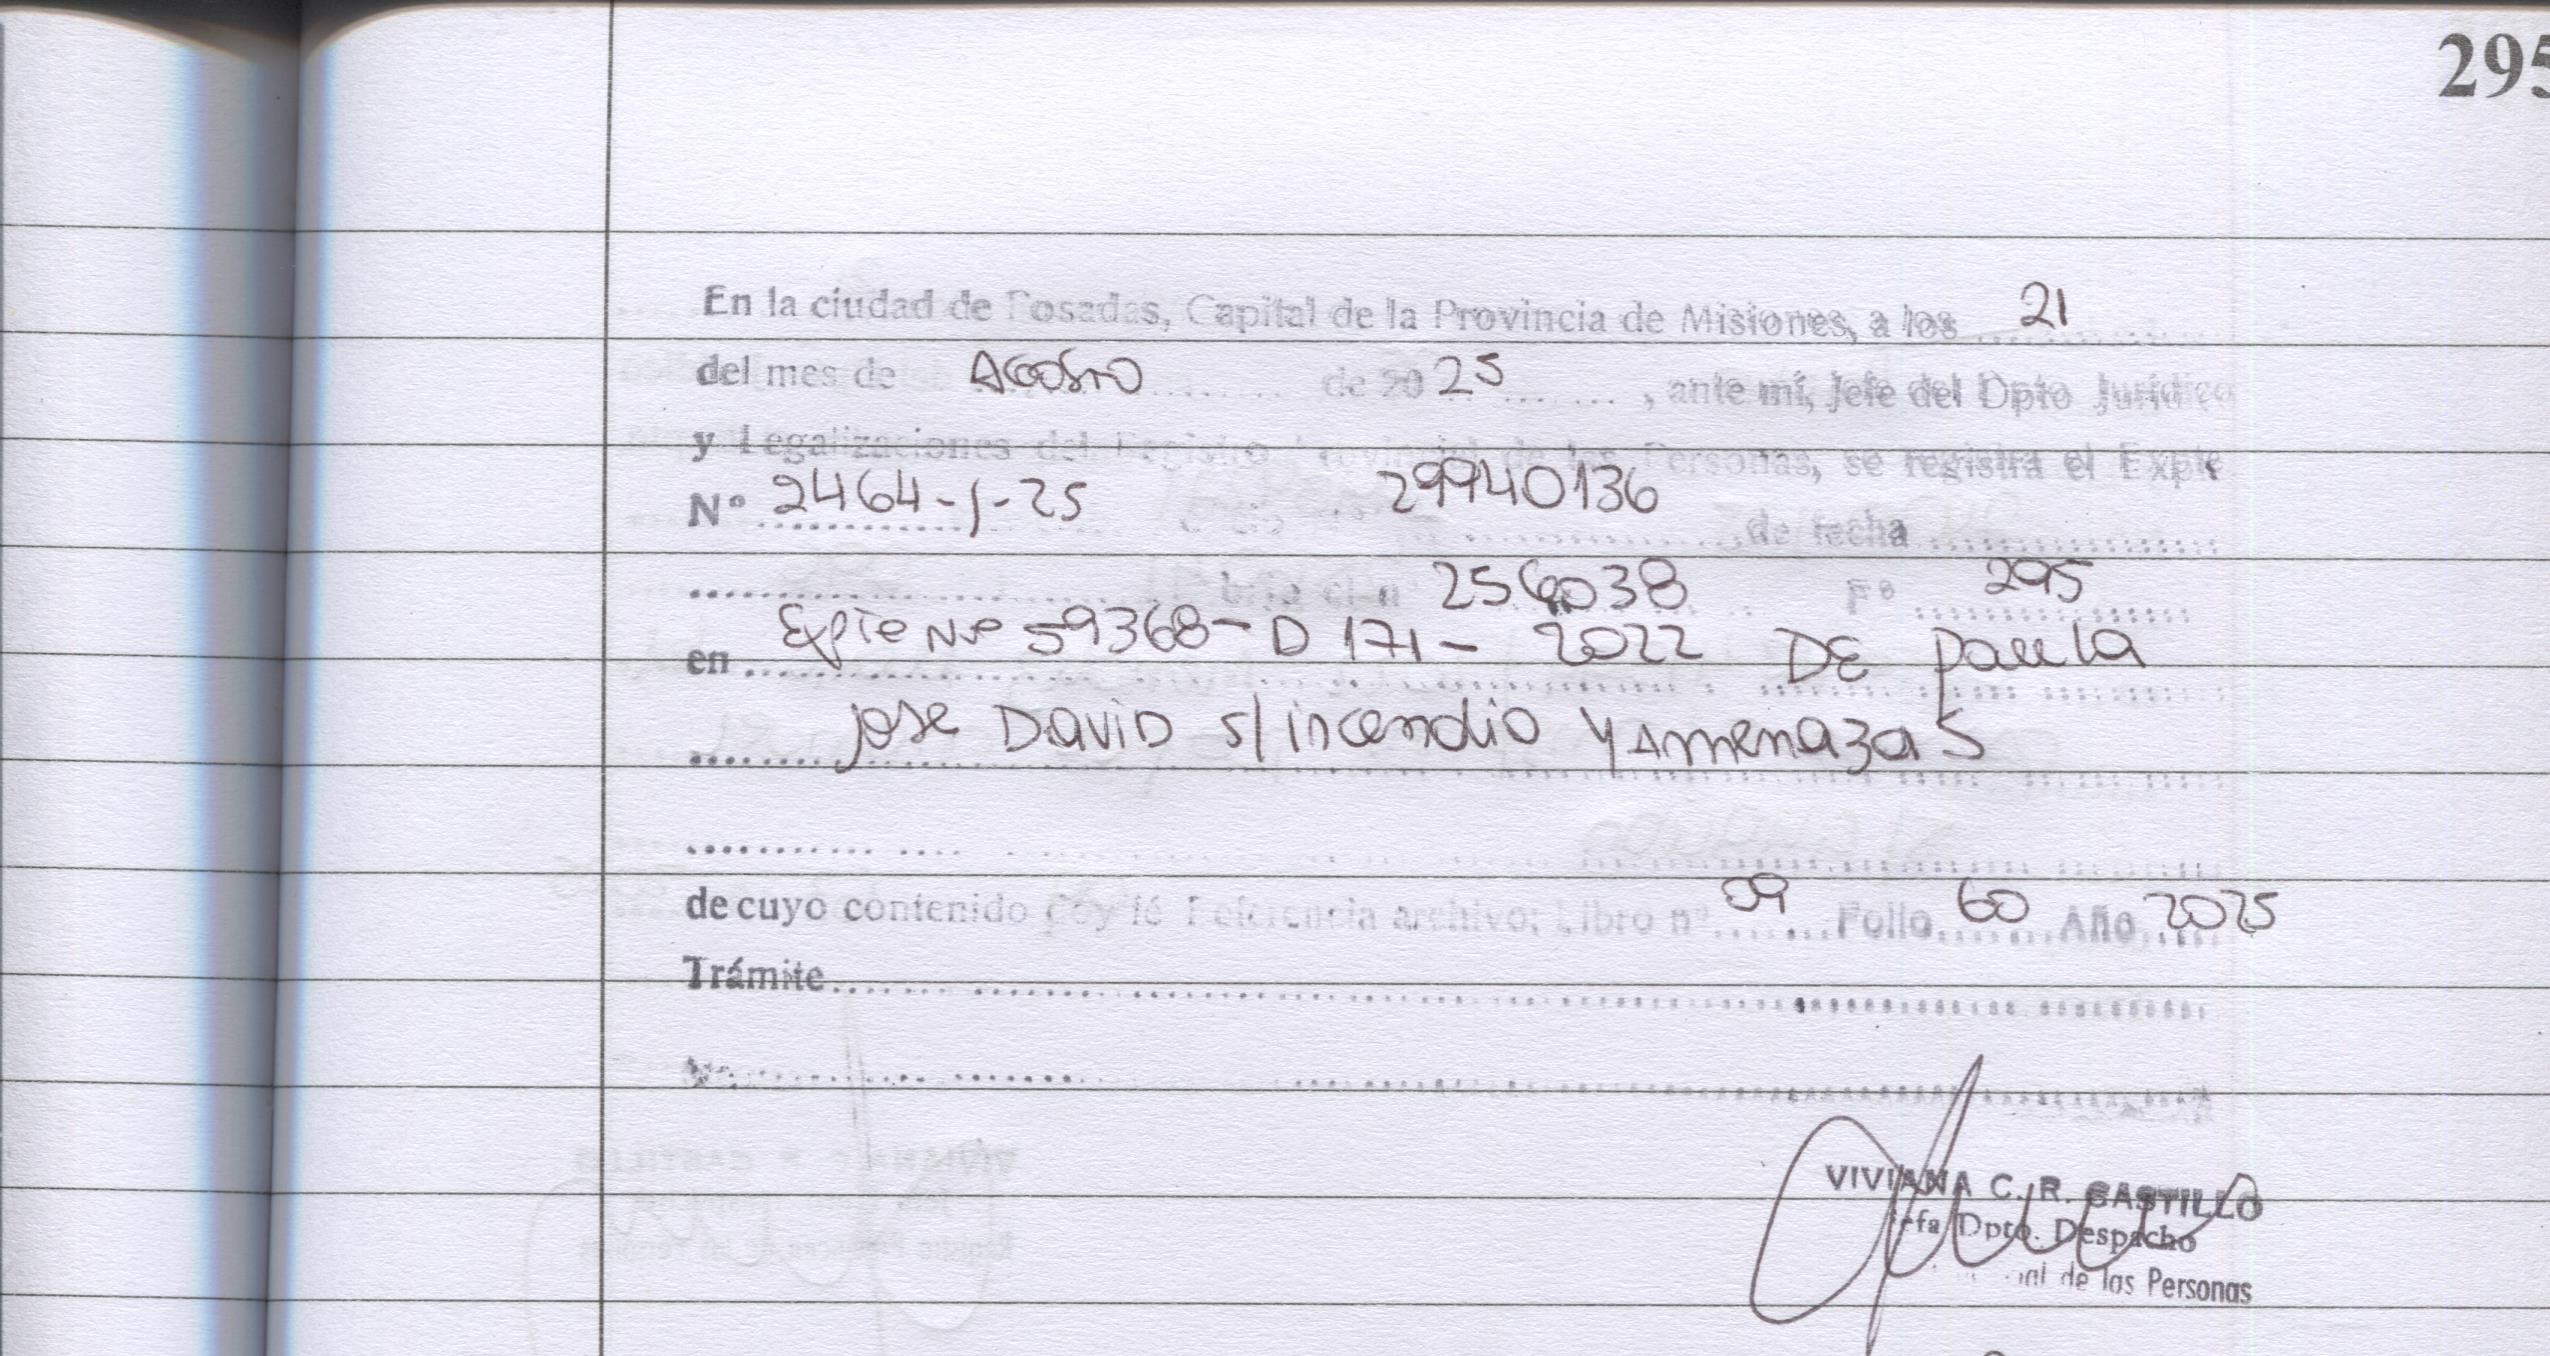 295
En la ciudad de Posadas, Capital de la Provincia de Misiones, a los 21
del mes de Agosto de 2025, ante mí, Jefe del Dpto Jurídico
y Legalizaciones del Registro Provincial de las Personas, se registra el Expte
N° 2464-J-25 29940136 de fecha
bajo el n° 256038 F° 295
en Expte Nro 59368-D 171-2022 DE Paula
jose David s/incendio y Amenazas
de cuyo contenido doy fé Referencia archivo: Libro n° 09 Folio 60 Año 2025
Trámite
VIVIANA C. R. CASTILLO
Jefa Dpto. Despacho
de las Personas